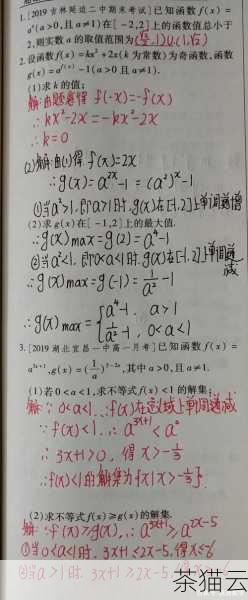 1.[2019吉林延边二中期末考试]已知函数f(x)=
aˣ(a>0,且a≠1)在[-2,2]上的函数值总小于
2,则实数a的取值范围为(√2/2,1)∪(1,√2)
2.设函数f(x)=kx²+2x(k为常数)为奇函数,函数
g(x)=a^f(x)-1(a>0且a≠1).
(1)求k的值;
解:由题意得 f(-x)=-f(x)
∴kx²-2x=-kx²-2x
∴k=0
(2)解:由(1)得f(x)=2x
∴g(x)=a²ˣ-1=(a²)ˣ-1
①当a²>1,即a>1时,g(x)在[-1,2]上单调递增
(2)求g(x)在[-1,2]上的最大值.
∴g(x)max=g(2)=a⁴-1
②当a²<1,即0<a<1时,g(x)在[-1,2]上单调递减
∴g(x)max=g(-1)=1/a²-1
∴g(x)max={a⁴-1, a>1
1/a²-1, 0<a<1
3.[2019湖北宜昌一中高一月考]已知函数f(x)=
a³ˣ⁺¹,g(x)=(1/a)⁵⁻²ˣ,其中a>0,且a≠1.
(1)若0<a<1,求不等式f(x)<1的解集;
解:∵0<a<1,∴f(x)在定义域上单调递减
∵f(x)<1,∴a³ˣ⁺¹<a⁰
∴3x+1>0,得x>-1/3
∴f(x)<1的解集为{x|x>-1/3}.
(2)求不等式f(x)≥g(x)的解集.
解:∵f(x)≥g(x),∴a³ˣ⁺¹≥a²ˣ⁻⁵
①当0<a<1时,3x+1≤2x-5,得x≤-6
②当a>1时,3x+1≥2x-5,得x≥-6
茶猫云